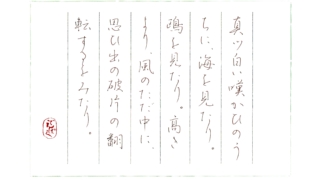 真ッ白い嘆かひのう
ちに、海を見たり。
鴎を見たり。高き
より、風のただ中に、
思ひ出の破片の翻
転するをみたり。